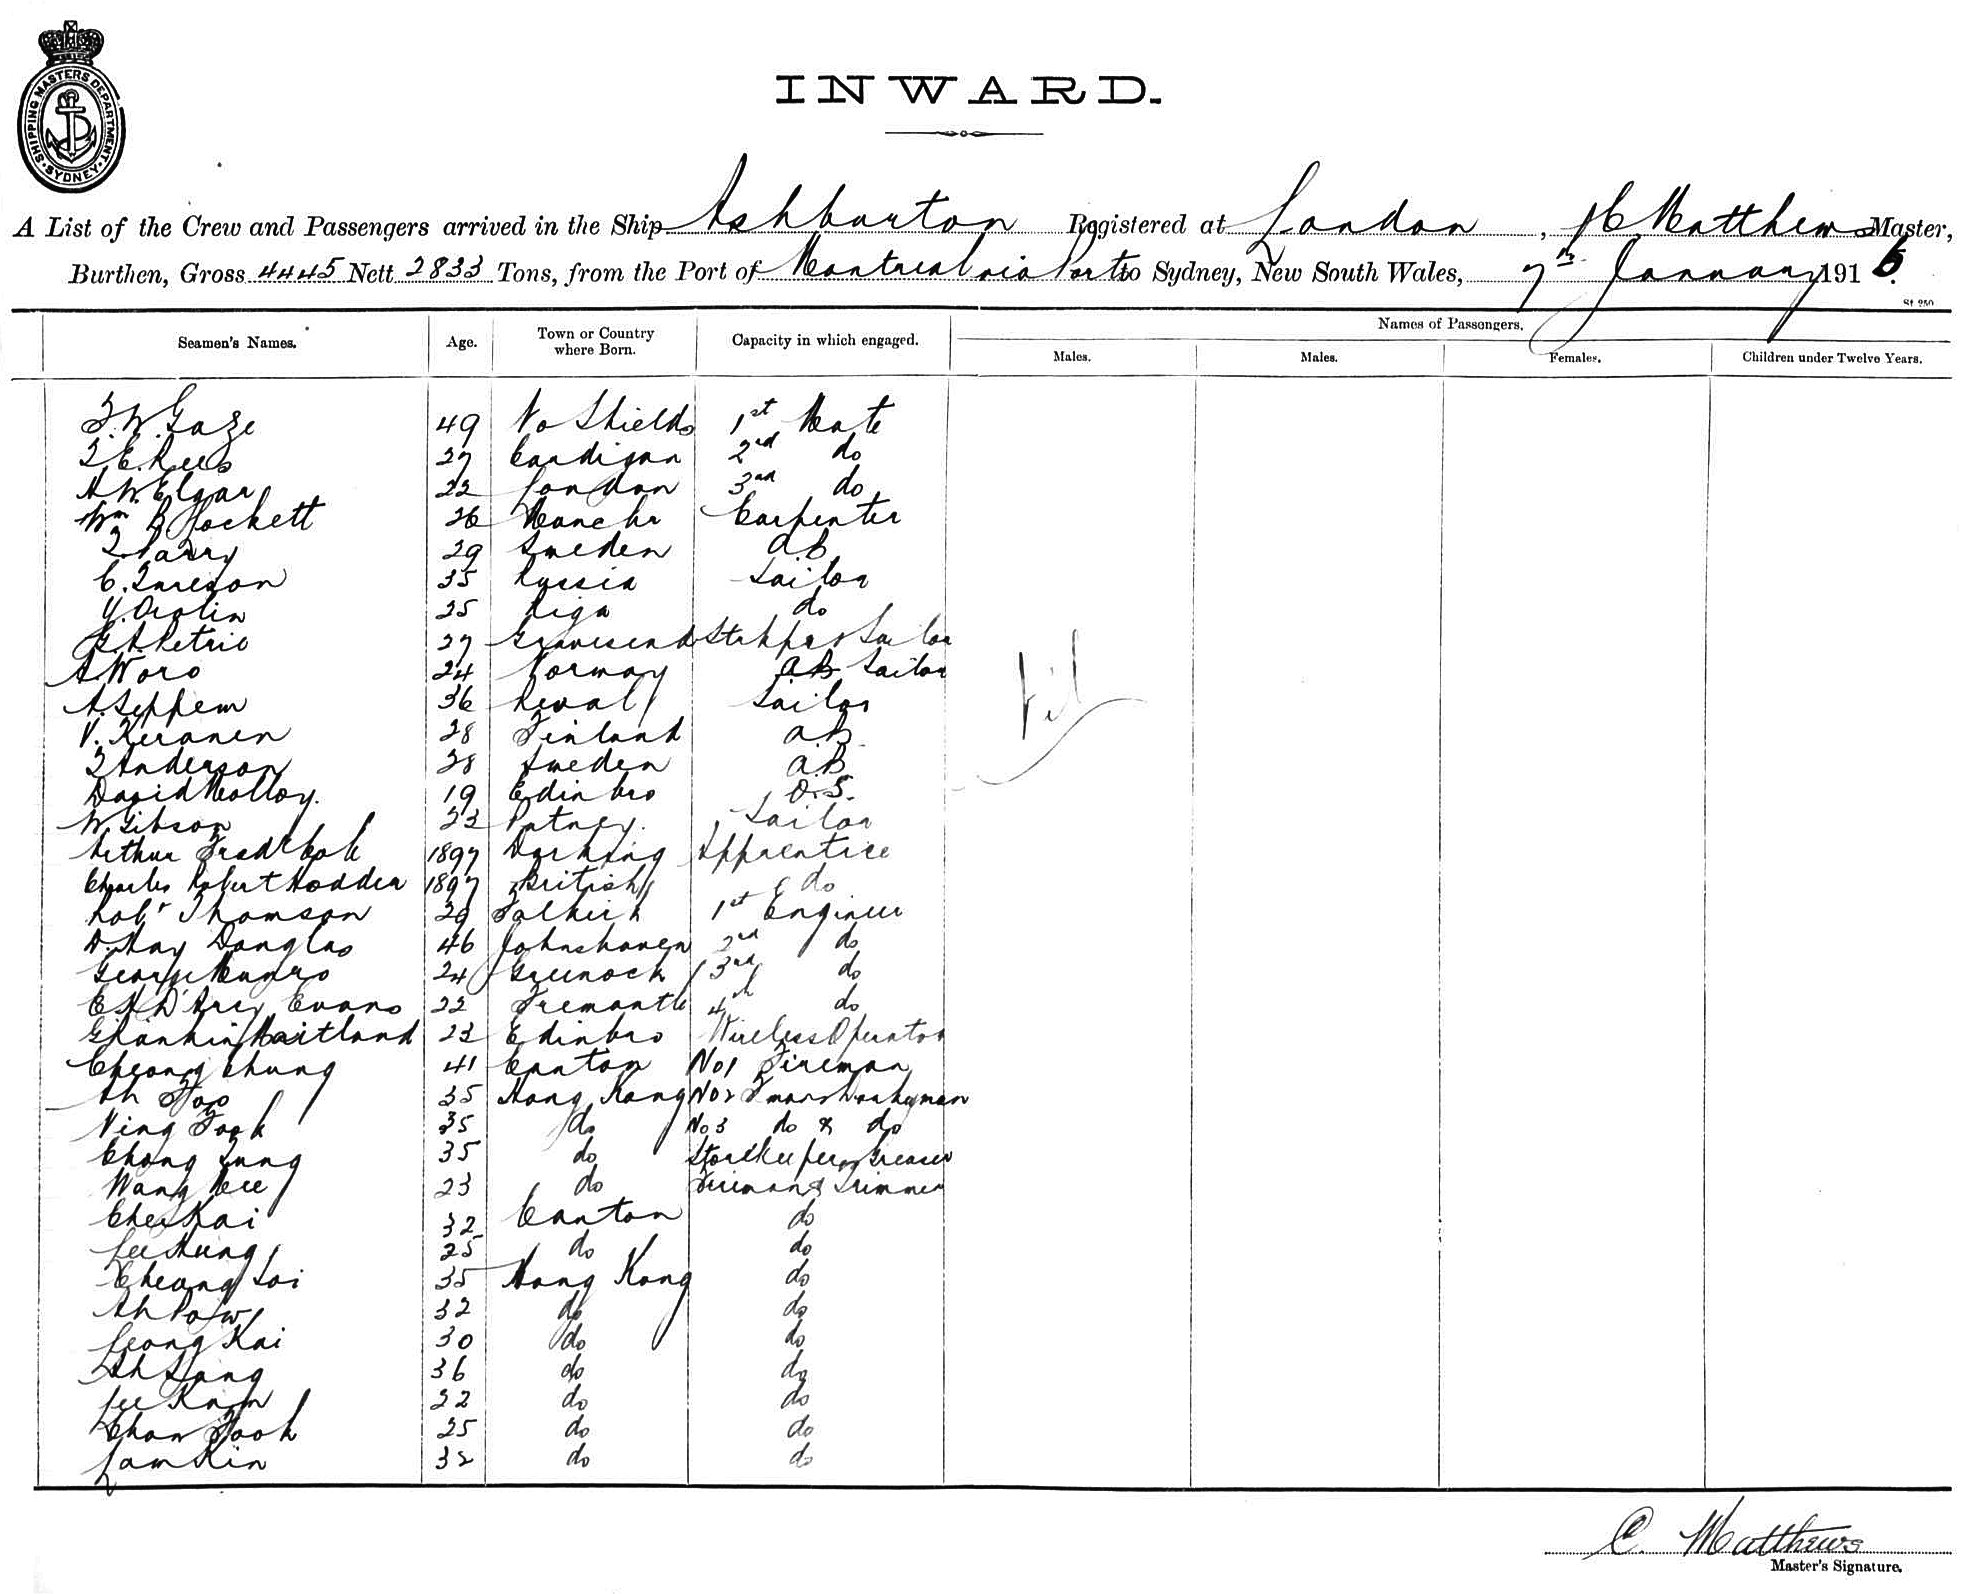 SHIPPING MASTERS DEPARTMENT SYDNEY
INWARD.
A List of the Crew and Passengers arrived in the Ship Ashburton Registered at London, C Matthews Master,
Burthen, Gross 4445 Nett 2833 Tons, from the Port of Montreal via Ports to Sydney, New South Wales, 7th January 1916.
Names of Passengers.
Seamen's Names. Age. Town or Country where Born. Capacity in which engaged. Males. Males. Females. Children under Twelve Years.
49 No Shields 1st Mate
27 Cardigan 2nd do
A.W. Elgar 22 London 3rd do
Wm Lockett 26 Manchr Carpenter
29 Sweden AB
35 Russia Sailor
25 Riga do
G.A. Petrie 27 Gravesend Sailor
A. Woro 24 Norway AB Sailor
A. Seppem 36 Reval Sailor
V. Keranen 28 Finland A.B.
Anderson 28 Sweden A.B.
David Molloy. 19 Edinbro O.S.
W Gibson 23 Putney. Sailor
Arthur Fredk Cole 1897 Dorking Apprentice
Charles Robert Hodder 1897 British do
Robt Thomson 29 Falkirk 1st Engineer
D. Hay Douglas 46 Johnshaven 2nd do
George Munro 24 Greenock 3rd do
E. H. D'Arcy Evans 22 Fremantle 4th do
G Rankin Maitland 23 Edinbro Wireless Operator
Cheong Chung 41 Canton No1 Fireman
Ah Foo 35 Hong Kong No2
Ning Fook 35 do No3 do & do
Chong Sung 35 do Storekeeper Greaser
Wong Kee 23 do Fireman & Trimmer
Che Kai 32 Canton do
Lee Hung 25 do do
Cheung Loi 35 Hong Kong do
Ah Pow 32 do do
Leong Kai 30 do do
Ah Sang 36 do do
Lee Kam 22 do do
Chan Fook 25 do do
Lam Kin 32 do do
Nil
C. Matthews
Master's Signature.